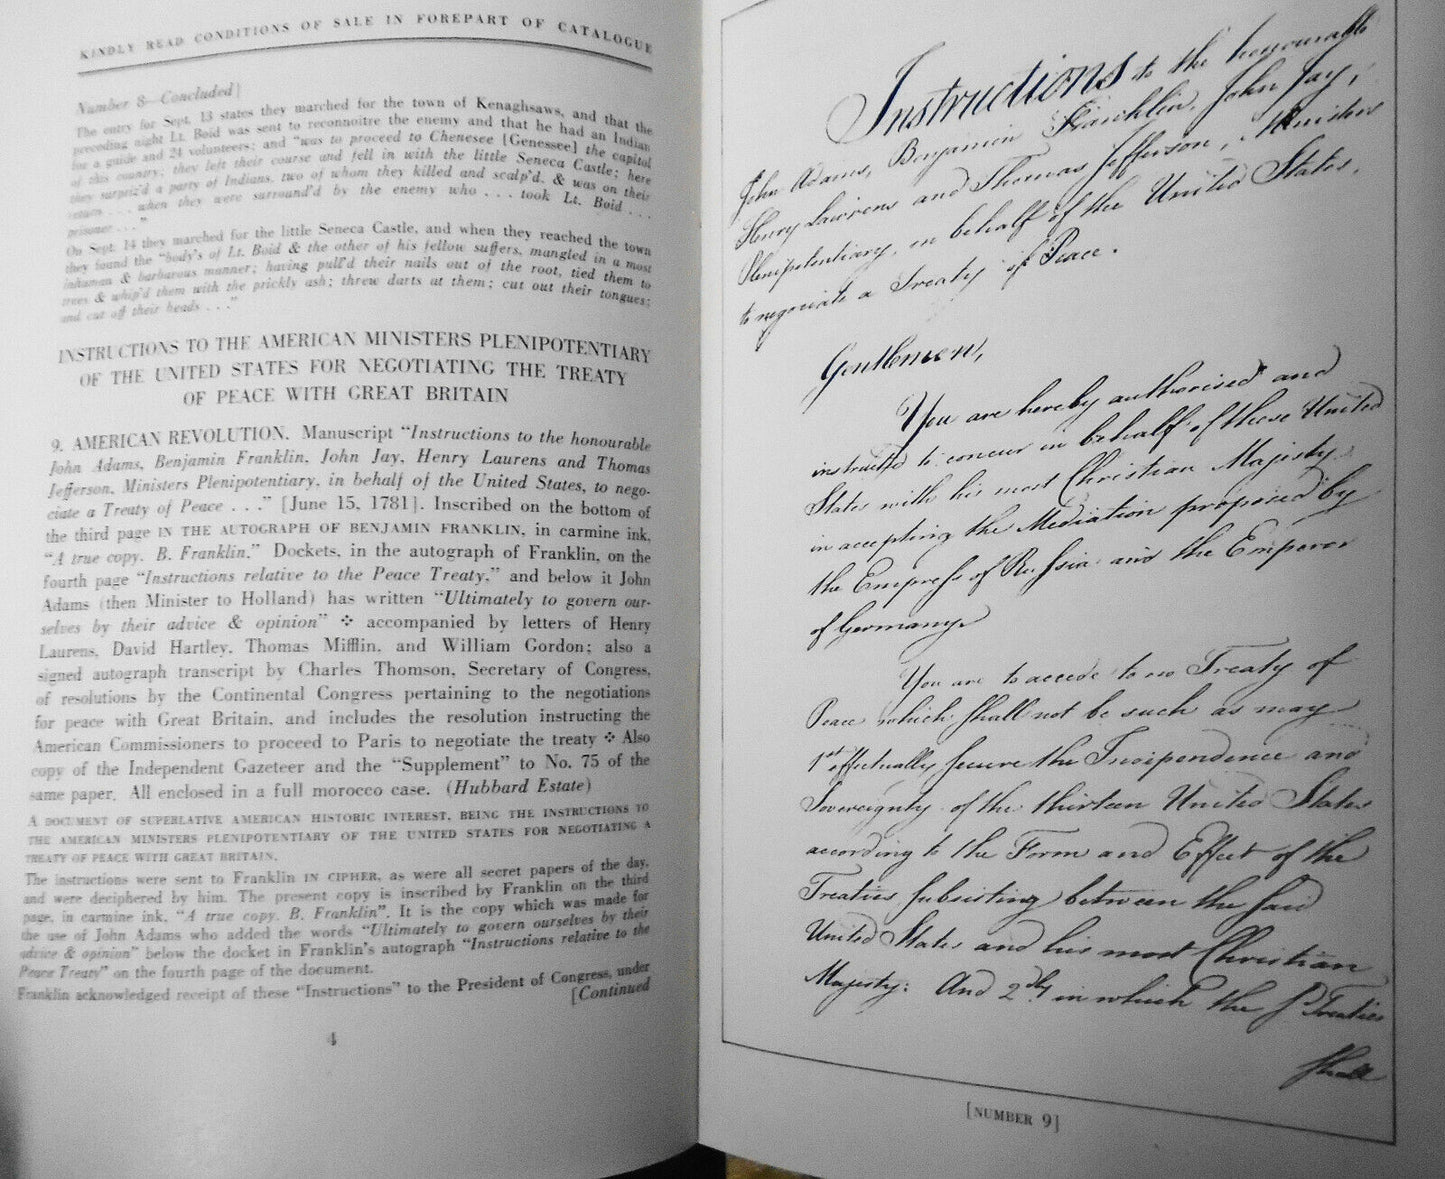 KINDLY READ CONDITIONS OF SALE IN FOREPART OF CATALOGUE
Number 8—Concluded]
The entry for Sept. 13 states they marched for the town of Kenaghsaws, and that the
preceding night Lt. Boid was sent to reconnoitre the enemy and that he had an Indian
for a guide and 24 volunteers; and "was to proceed to Chenesee [Genessee] the capitol
of this country; they left their course and fell in with the little Seneca Castle; here
they surpriz'd a party of Indians, two of whom they killed and scalp'd, & was on their
return . . . when they were surround'd by the enemy who . . . took Lt. Boid . . .
prisoner . . ."
On Sept. 14 they marched for the little Seneca Castle, and when they reached the town
they found the "body's of Lt. Boid & the other of his fellow suffers, mangled in a most
inhuman & barbarous manner; having pull'd their nails out of the root, tied them to
trees & whip'd them with the prickly ash; threw darts at them; cut out their tongues;
and cut off their heads . . ."
INSTRUCTIONS TO THE AMERICAN MINISTERS PLENIPOTENTIARY
OF THE UNITED STATES FOR NEGOTIATING THE TREATY
OF PEACE WITH GREAT BRITAIN
9. AMERICAN REVOLUTION. Manuscript "Instructions to the honourable
John Adams, Benjamin Franklin, John Jay, Henry Laurens and Thomas
Jefferson, Ministers Plenipotentiary, in behalf of the United States, to nego-
ciate a Treaty of Peace . . ." [June 15, 1781]. Inscribed on the bottom of
the third page IN THE AUTOGRAPH OF BENJAMIN FRANKLIN, in carmine ink,
"A true copy. B. Franklin." Dockets, in the autograph of Franklin, on the
fourth page "Instructions relative to the Peace Treaty," and below it John
Adams (then Minister to Holland) has written "Ultimately to govern our-
selves by their advice & opinion" ⁘ accompanied by letters of Henry
Laurens, David Hartley, Thomas Mifflin, and William Gordon; also a
signed autograph transcript by Charles Thomson, Secretary of Congress,
of resolutions by the Continental Congress pertaining to the negotiations
for peace with Great Britain, and includes the resolution instructing the
American Commissioners to proceed to Paris to negotiate the treaty ⁘ Also
copy of the Independent Gazeteer and the "Supplement" to No. 75 of the
same paper. All enclosed in a full morocco case. (Hubbard Estate)
A DOCUMENT OF SUPERLATIVE AMERICAN HISTORIC INTEREST, BEING THE INSTRUCTIONS TO
THE AMERICAN MINISTERS PLENIPOTENTIARY OF THE UNITED STATES FOR NEGOTIATING A
TREATY OF PEACE WITH GREAT BRITAIN.
The instructions were sent to Franklin IN CIPHER, as were all secret papers of the day,
and were deciphered by him. The present copy is inscribed by Franklin on the third
page, in carmine ink, "A true copy. B. Franklin". It is the copy which was made for
the use of John Adams who added the words "Ultimately to govern ourselves by their
advice & opinion" below the docket in Franklin's autograph "Instructions relative to the
Peace Treaty" on the fourth page of the document.
Franklin acknowledged receipt of these "Instructions" to the President of Congress, under
[Continued
4
Instructions to the honourable
John Adams, Benjamin Francklin, John Jay,
Henry Lawrens and Thomas Jefferson, Ministers
Plenipotentiary, in behalf of the United States,
to negociate a Treaty of Peace.
Gentlemen,
You are hereby authorised and
instructed to concur in behalf of these United
States with his most Christian Majesty
in accepting the Mediation proposed by
the Empress of Russia and the Emperor
of Germany.
You are to accede to no Treaty of
Peace which shall not be such as may
1st effectually secure the Independence and
Sovereignty of the thirteen United States
according to the Form and Effect of the
Treaties subsisting between the said
United States and his most Christian
Majesty: And 2dly in which the sd Treaties
shall
[NUMBER 9]